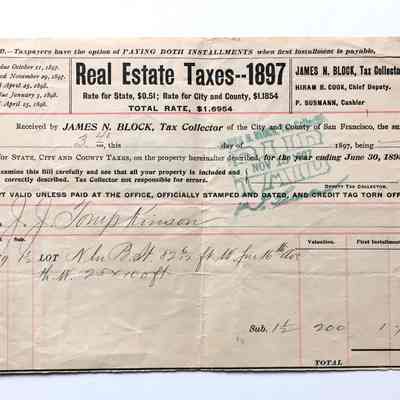 D.—Taxpayers have the option of PAYING BOTH INSTALLMENTS when first installment is payable,
due October 11, 1897.
November 29, 1897.
April 25, 1898.
due January 3, 1898.
April 25, 1898.
Real Estate Taxes--1897
Rate for State, $0.51; Rate for City and County, $1.1854
TOTAL RATE, $1.6954
JAMES N. BLOCK, Tax Collector
HIRAM H. COOK, Chief Deputy.
P. SUSMANN, Cashier
Received by JAMES N. BLOCK, Tax Collector of the City and County of San Francisco, the sum
this day of 1897, being
for STATE, CITY AND COUNTY TAXES, on the property hereinafter described, for the year ending June 30, 189
Examine this Bill carefully and see that all your property is included and
correctly described. Tax Collector not responsible for errors.
DEPUTY TAX COLLECTOR.
PT VALID UNLESS PAID AT THE OFFICE, OFFICIALLY STAMPED AND DATED, AND CREDIT TAG TORN OFF
NOV
J. J. Tompkinson
Sub.
Valuation.
First Installment
LOT N ln B St 82½ ft W fm 16th Ave
th W 25 x 100 ft
Sub. 1½ 200 1 7
TOTAL